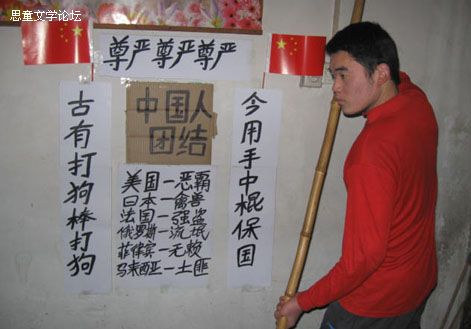 思童文学论坛
尊严尊严尊严
古有打狗棒打狗
中国人
团结
今用手中棍保国
美国一恶霸
日本一禽兽
法国一强盗
俄罗斯一流氓
菲律宾一无赖
马来西亚一土匪